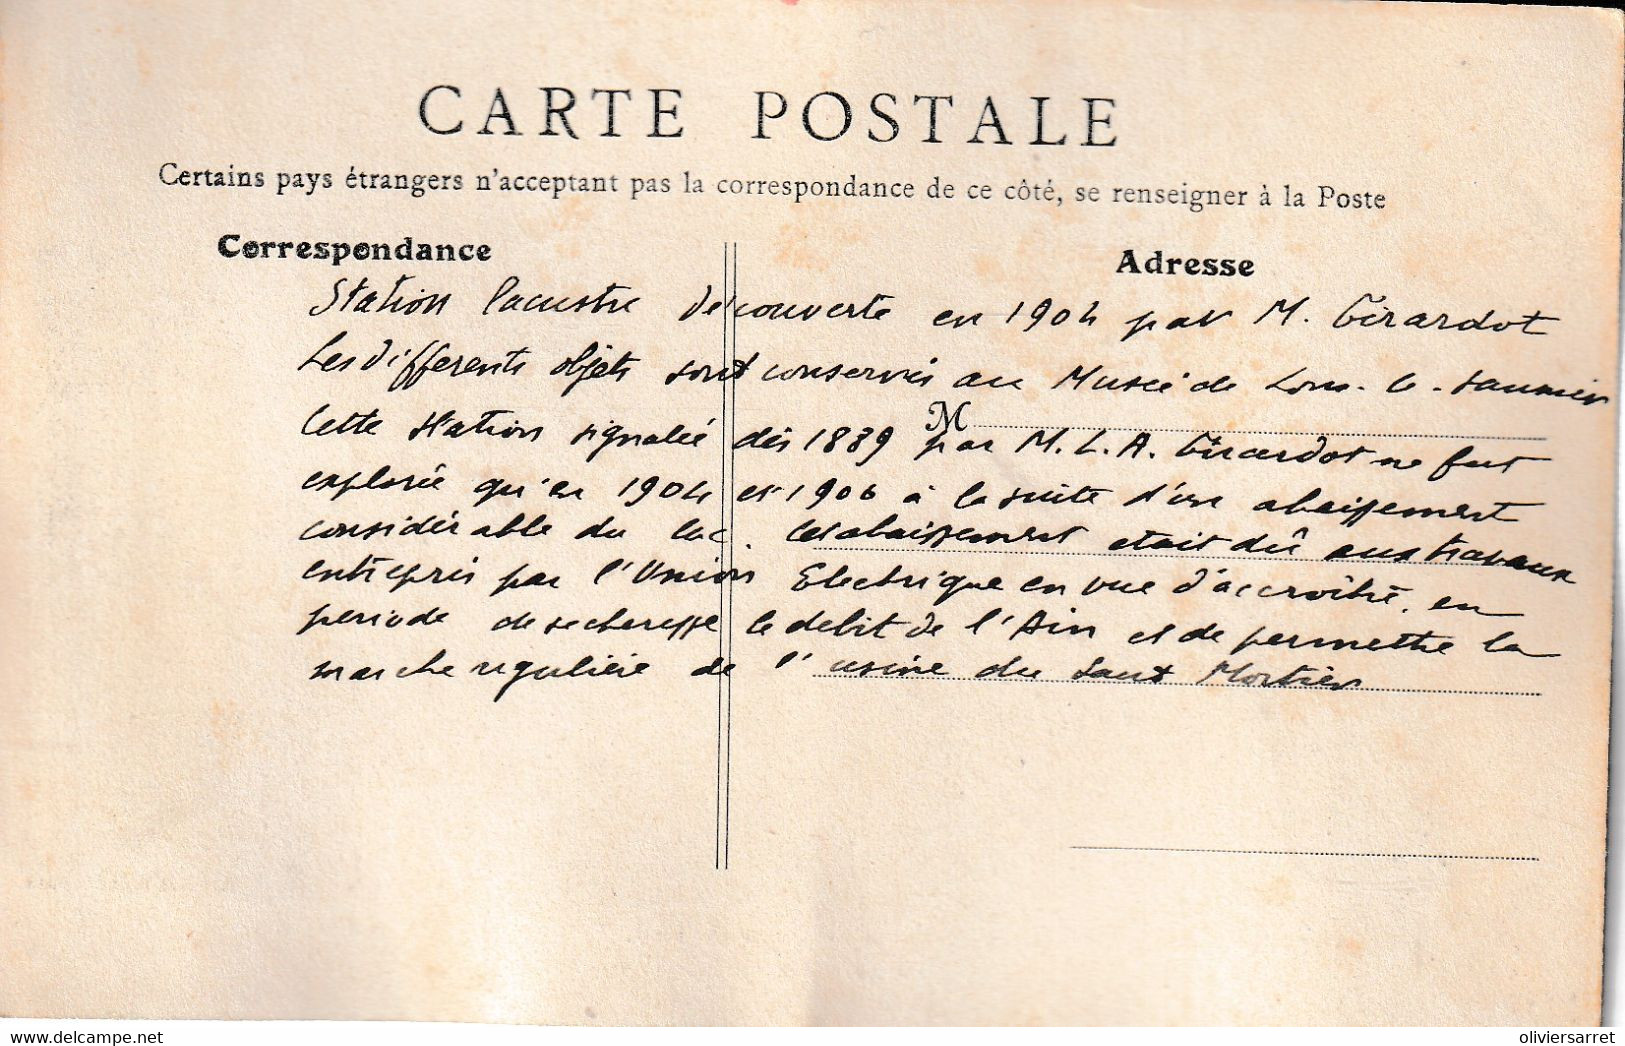 CARTE POSTALE
Certains pays étrangers n'acceptant pas la correspondance de ce côté, se renseigner à la Poste
Correspondance
Adresse
Station lacustre découverte en 1904 par M. Girardot
Les differents objets sont conservés au Musée de Lons-le-Saunier
M
Cette station signalée dès 1889 par M. L. A. Girardot ne fut
explorée qu'en 1904 et 1906 à la suite d'un abaissement
considérable du lac. Cet abaissement etait dû aux travaux
entrepris par l'Union Electrique en vue d'accroître, en
periode de secheresse le debit de l'Ain et de permettre la
marche regulière de l'usine du Saut Mortier
delcampe.net
oliviersarret